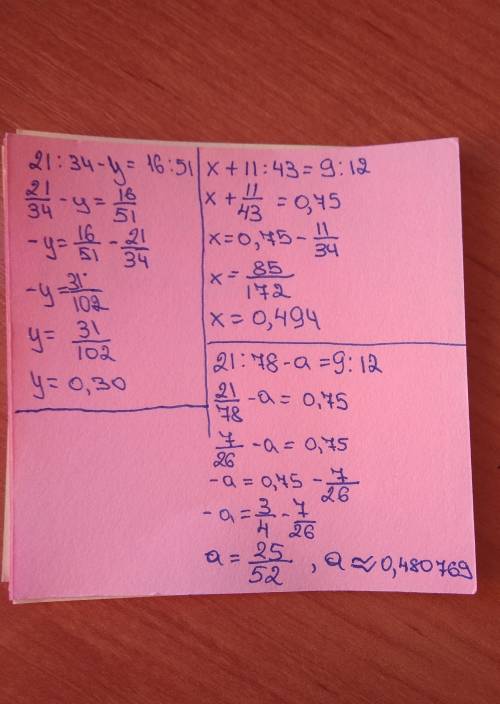 21 : 34 - y = 16 : 51
21/34 - y = 16/51
-y = 16/51 - 21/34
-y = 31/102
y = 31/102
y = 0,30
x + 11 : 43 = 9 : 12
x + 11/43 = 0,75
x = 0,75 - 11/34
x = 85/172
x = 0,494
21 : 78 - a = 9 : 12
21/78 - a = 0,75
7/26 - a = 0,75
-a = 0,75 - 7/26
-a = 3/4 - 7/26
a = 25/52 , a ≈ 0,480769